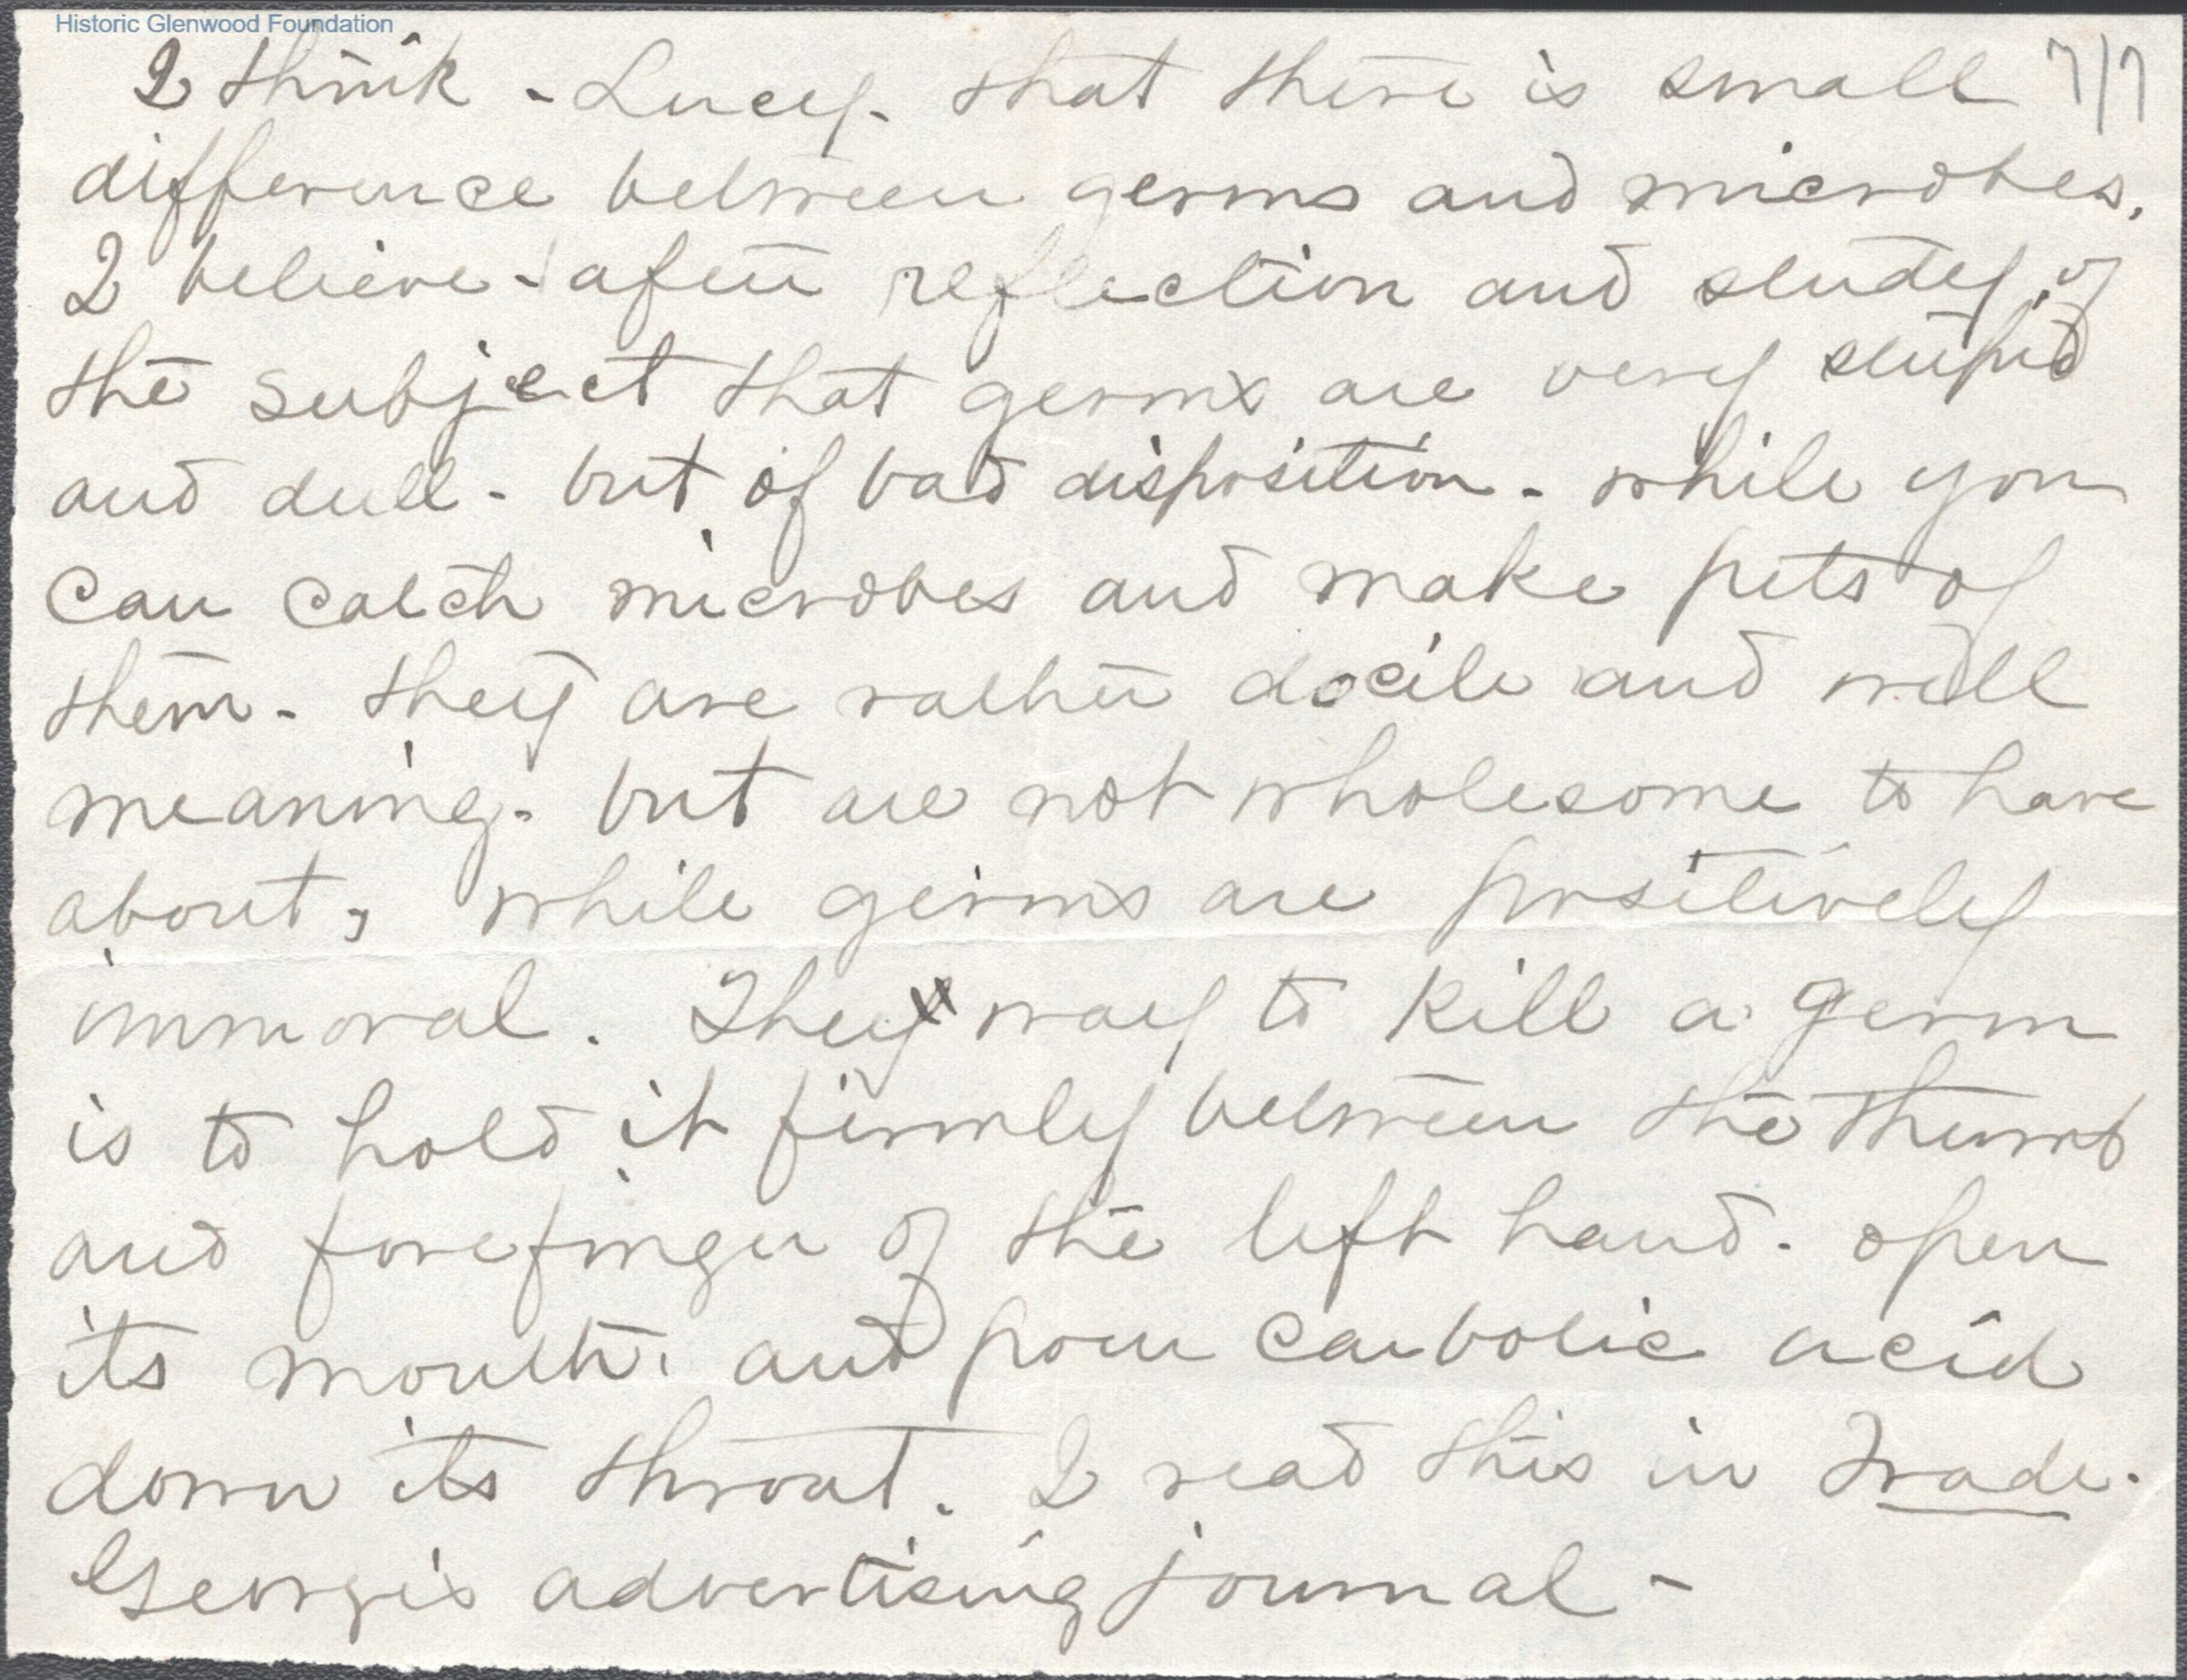 Historic Glenwood Foundation
I think - Lucy - that there is small 7/7
difference between germs and microbes.
I believe - after reflection and study of
the subject that germs are very stupid
and dull - but of bad disposition - while you
can catch microbes and make pets of
them - they are rather docile and well
meaning - but are not wholesome to have
about, while germs are positively
immoral. They way to kill a germ
is to hold it firmly between the thumb
and forefinger of the left hand - open
its mouth, and pour carbolic acid
down its throat. I read this in Trade -
George's advertising journal -